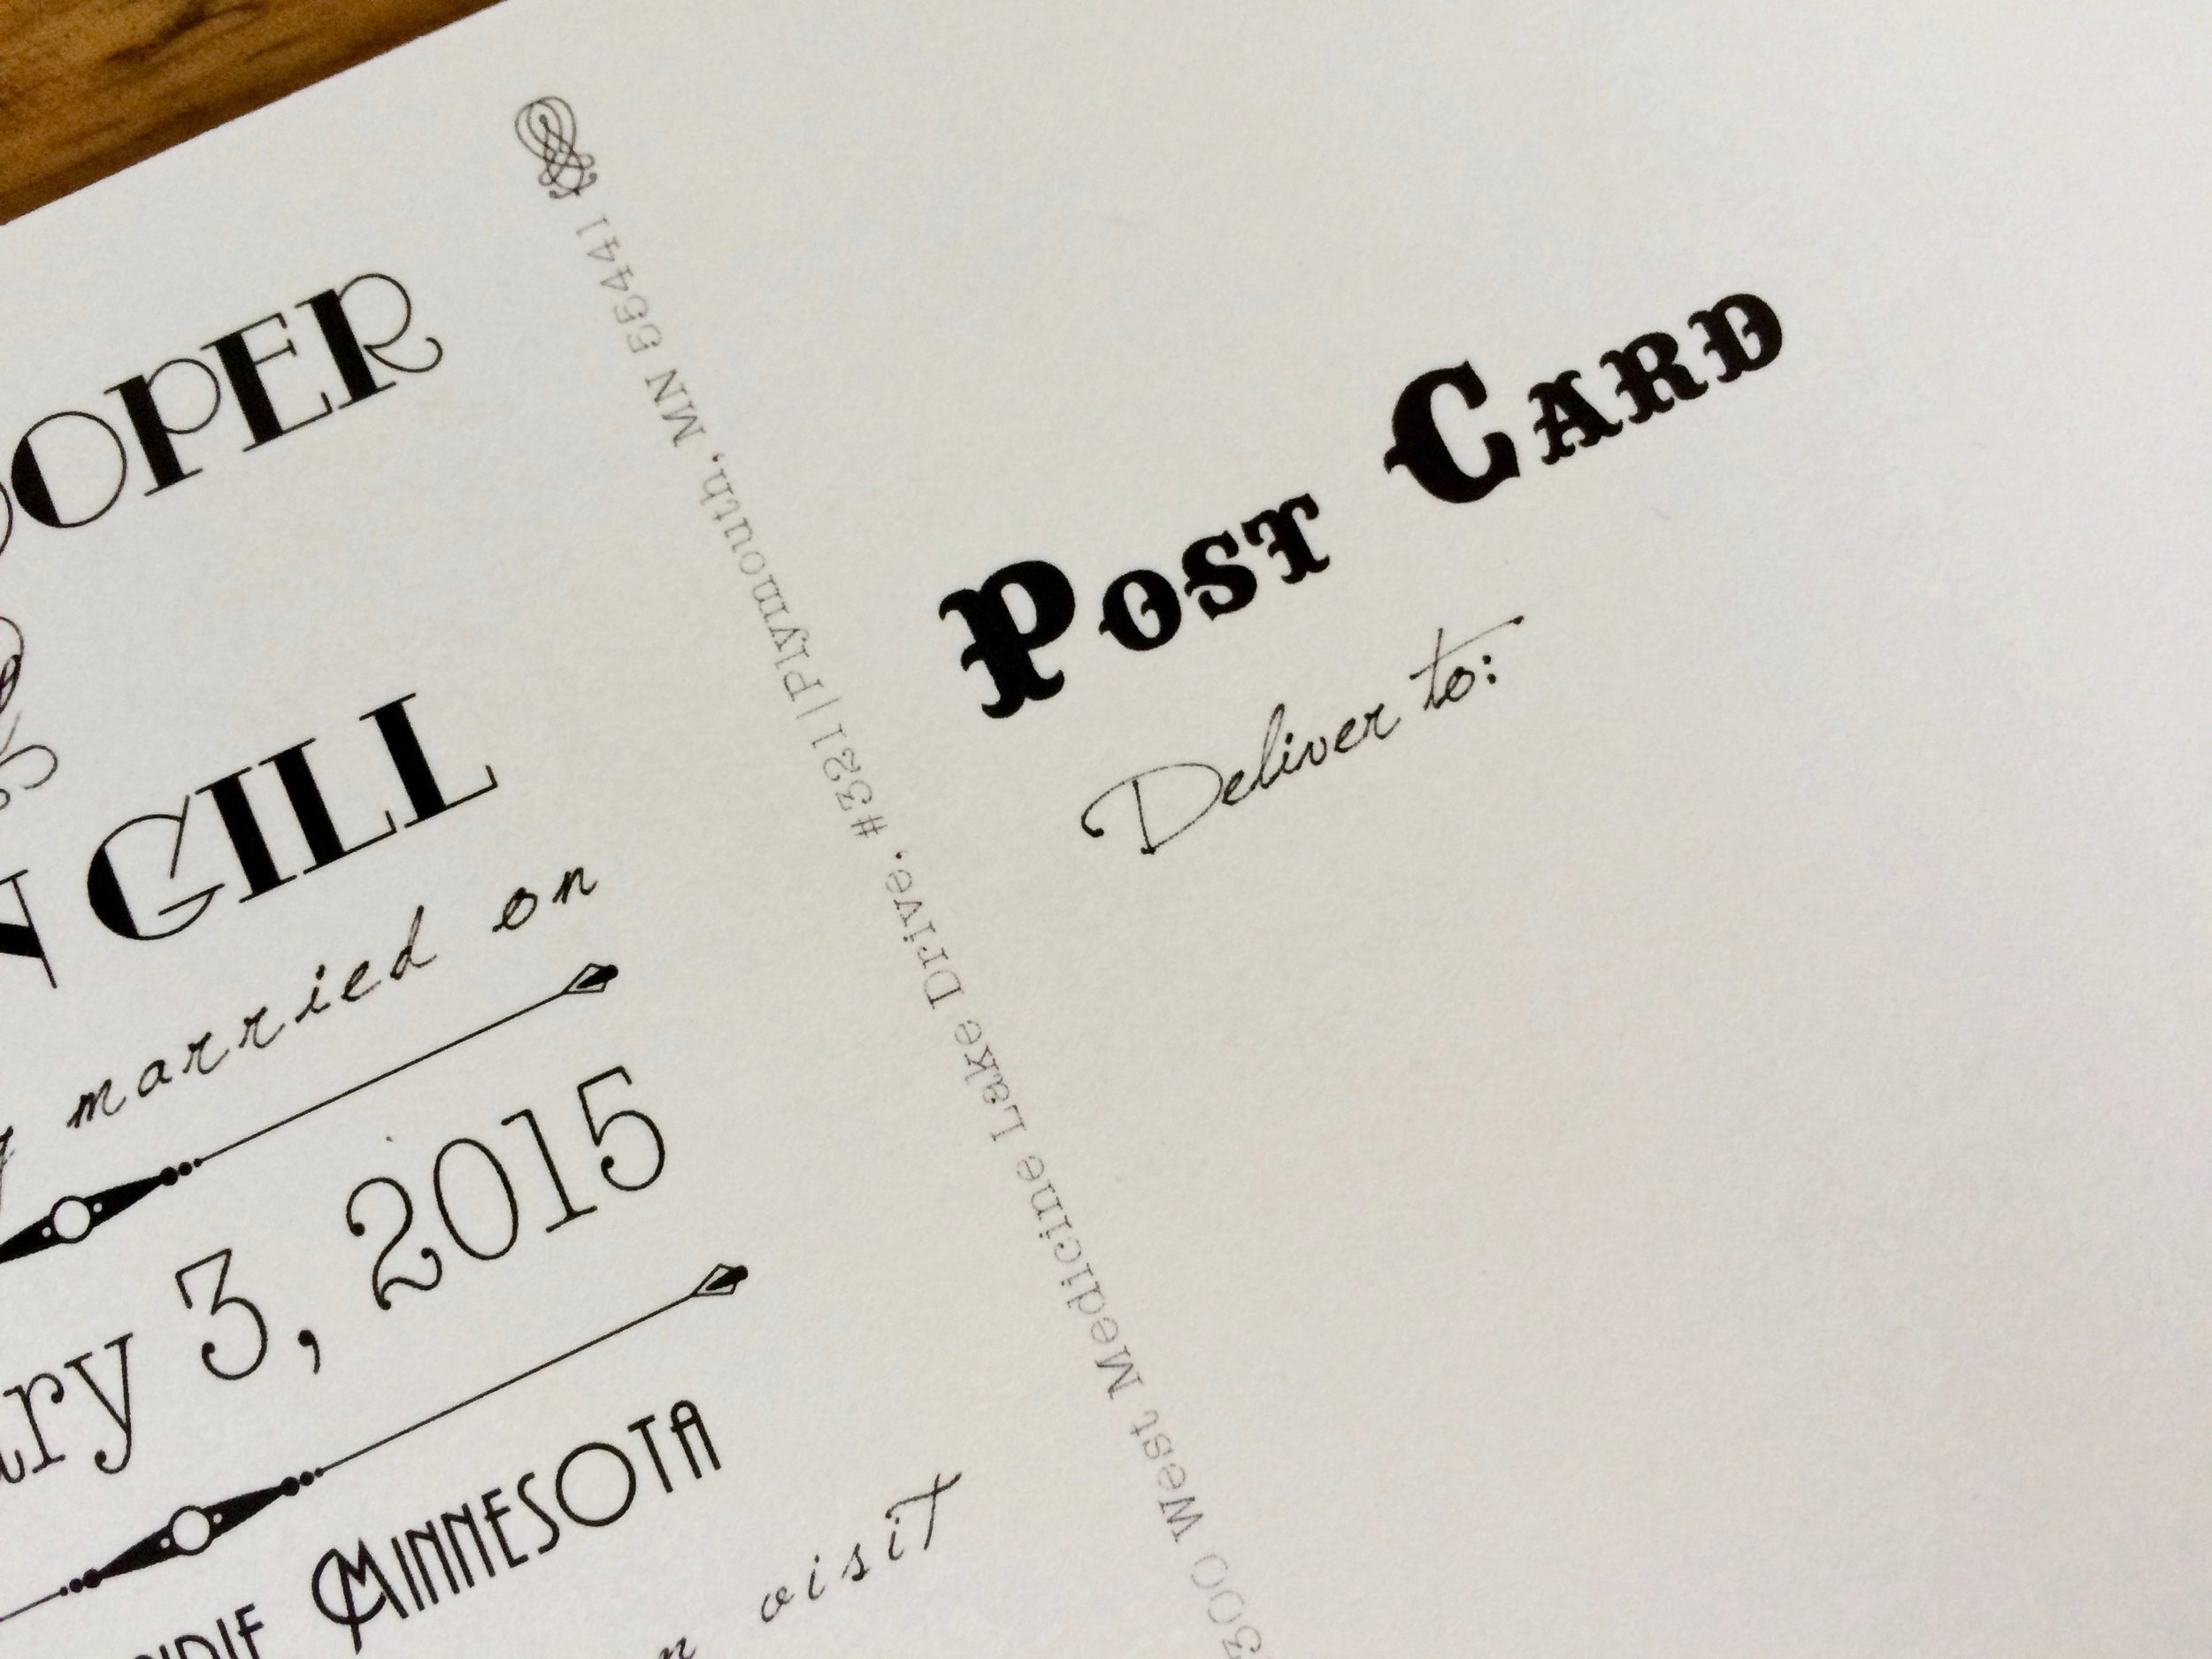 OPER
GILL
married on
3, 2015
MINNESOTA
visit
300 West Medicine Lake Drive, #321 | Plymouth, MN 55441
POST CARD
Deliver to: